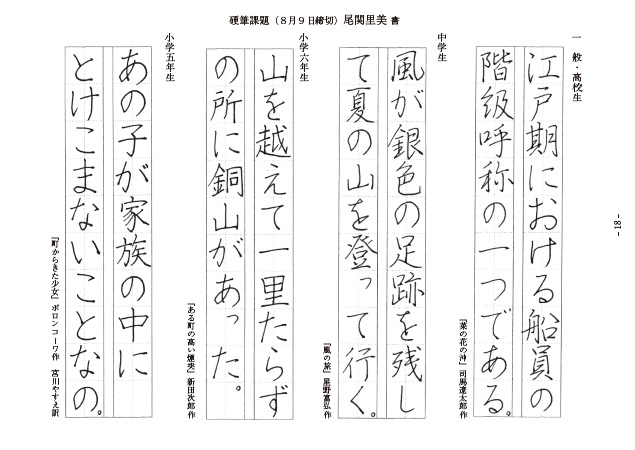 硬筆課題（８月９日締切）尾関里美 書
一般・高校生
江戸期における船員の
階級呼称の一つである。
『菜の花の沖』司馬遼太郎 作
中学生
風が銀色の足跡を残し
て夏の山を登って行く。
『風の旅』星野富弘 作
小学六年生
山を越えて一里たらず
の所に銅山があった。
『ある町の高い煙突』新田次郎 作
小学五年生
あの子が家族の中に
とけこまないことなの。
『町からきた少女』ボロンコーワ作 宮川やすえ訳
- 18 -